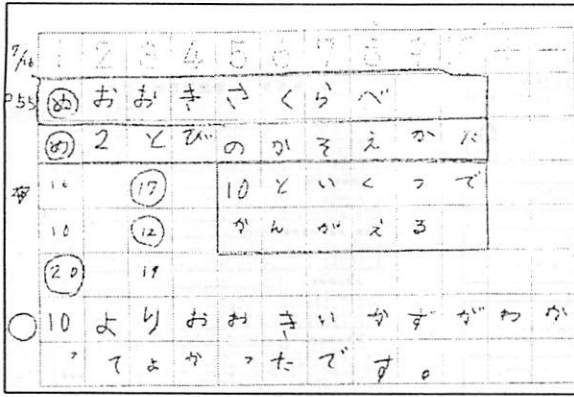 1 2 3 4 5 6 7 8 9
7/16
P55 め おおきさくらべ
め 2とびのかぞえかた
16 17 10といくつで
10 12 かんがえる
20 19
10よりおおきいかずがわか
ってよかったです。